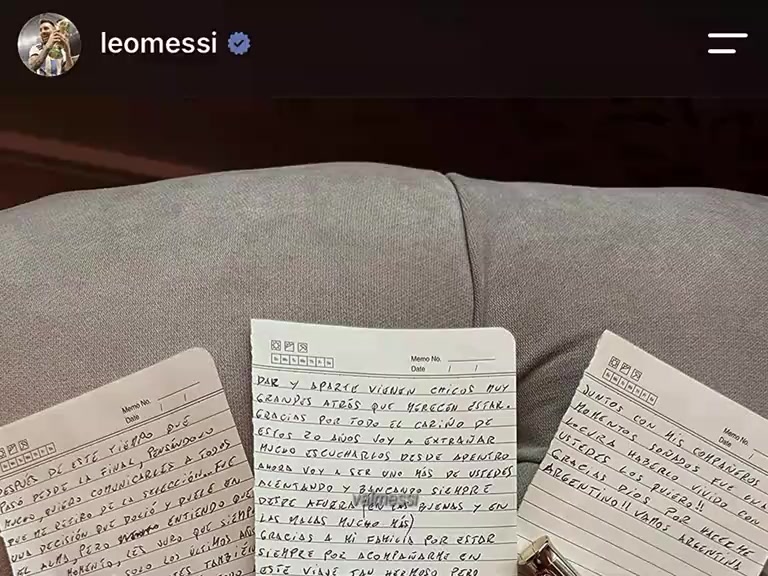 leomessi
Memo No.
Date / /
DESPUES DE ESTE TIEMPO QUE
PASÓ DESDE LA FINAL, PENSÁNDOLO
MUCHO, QUIERO COMUNICARLES A TODOS
QUE ME RETIRO DE LA SELECCIÓN. FUE
UNA DECISIÓN QUE DOLIÓ Y DUELE EN
EL ALMA, PERO ENTIENDO QUE
MOMENTO, LES JURO QUE SIEMP
SOLO LOS ÚLTIMOS AÑOS
Memo No.
Date / /
DAR Y APARTE VIENEN CHICOS MUY
GRANDES ATRÁS QUE MERECEN ESTAR.
GRACIAS POR TODO EL CARIÑO DE
ESTOS 20 AÑOS VOY A EXTRAÑAR
MUCHO ESCUCHARLOS DESDE ADENTRO
AHORA VOY A SER UNO MÁS DE USTEDES
ALENTANDO Y BANCANDO SIEMPRE
DESDE AFUERA (EN LAS BUENAS Y EN
LAS MALAS MUCHO MÁS)
GRACIAS A MI FAMILIA POR ESTAR
SIEMPRE POR ACOMPAÑARME EN
ESTE VIAJE TAN HERMOSO PERO
Memo No.
Date /
JUNTOS CON MIS COMPAÑEROS
MOMENTOS SOÑADOS FUE UNA
LOCURA HABERLO VIVIDO CON
USTEDES LOS QUIERO!!
GRACIAS DIOS POR HACERME
ARGENTINO!! VAMOS ARGENTINA